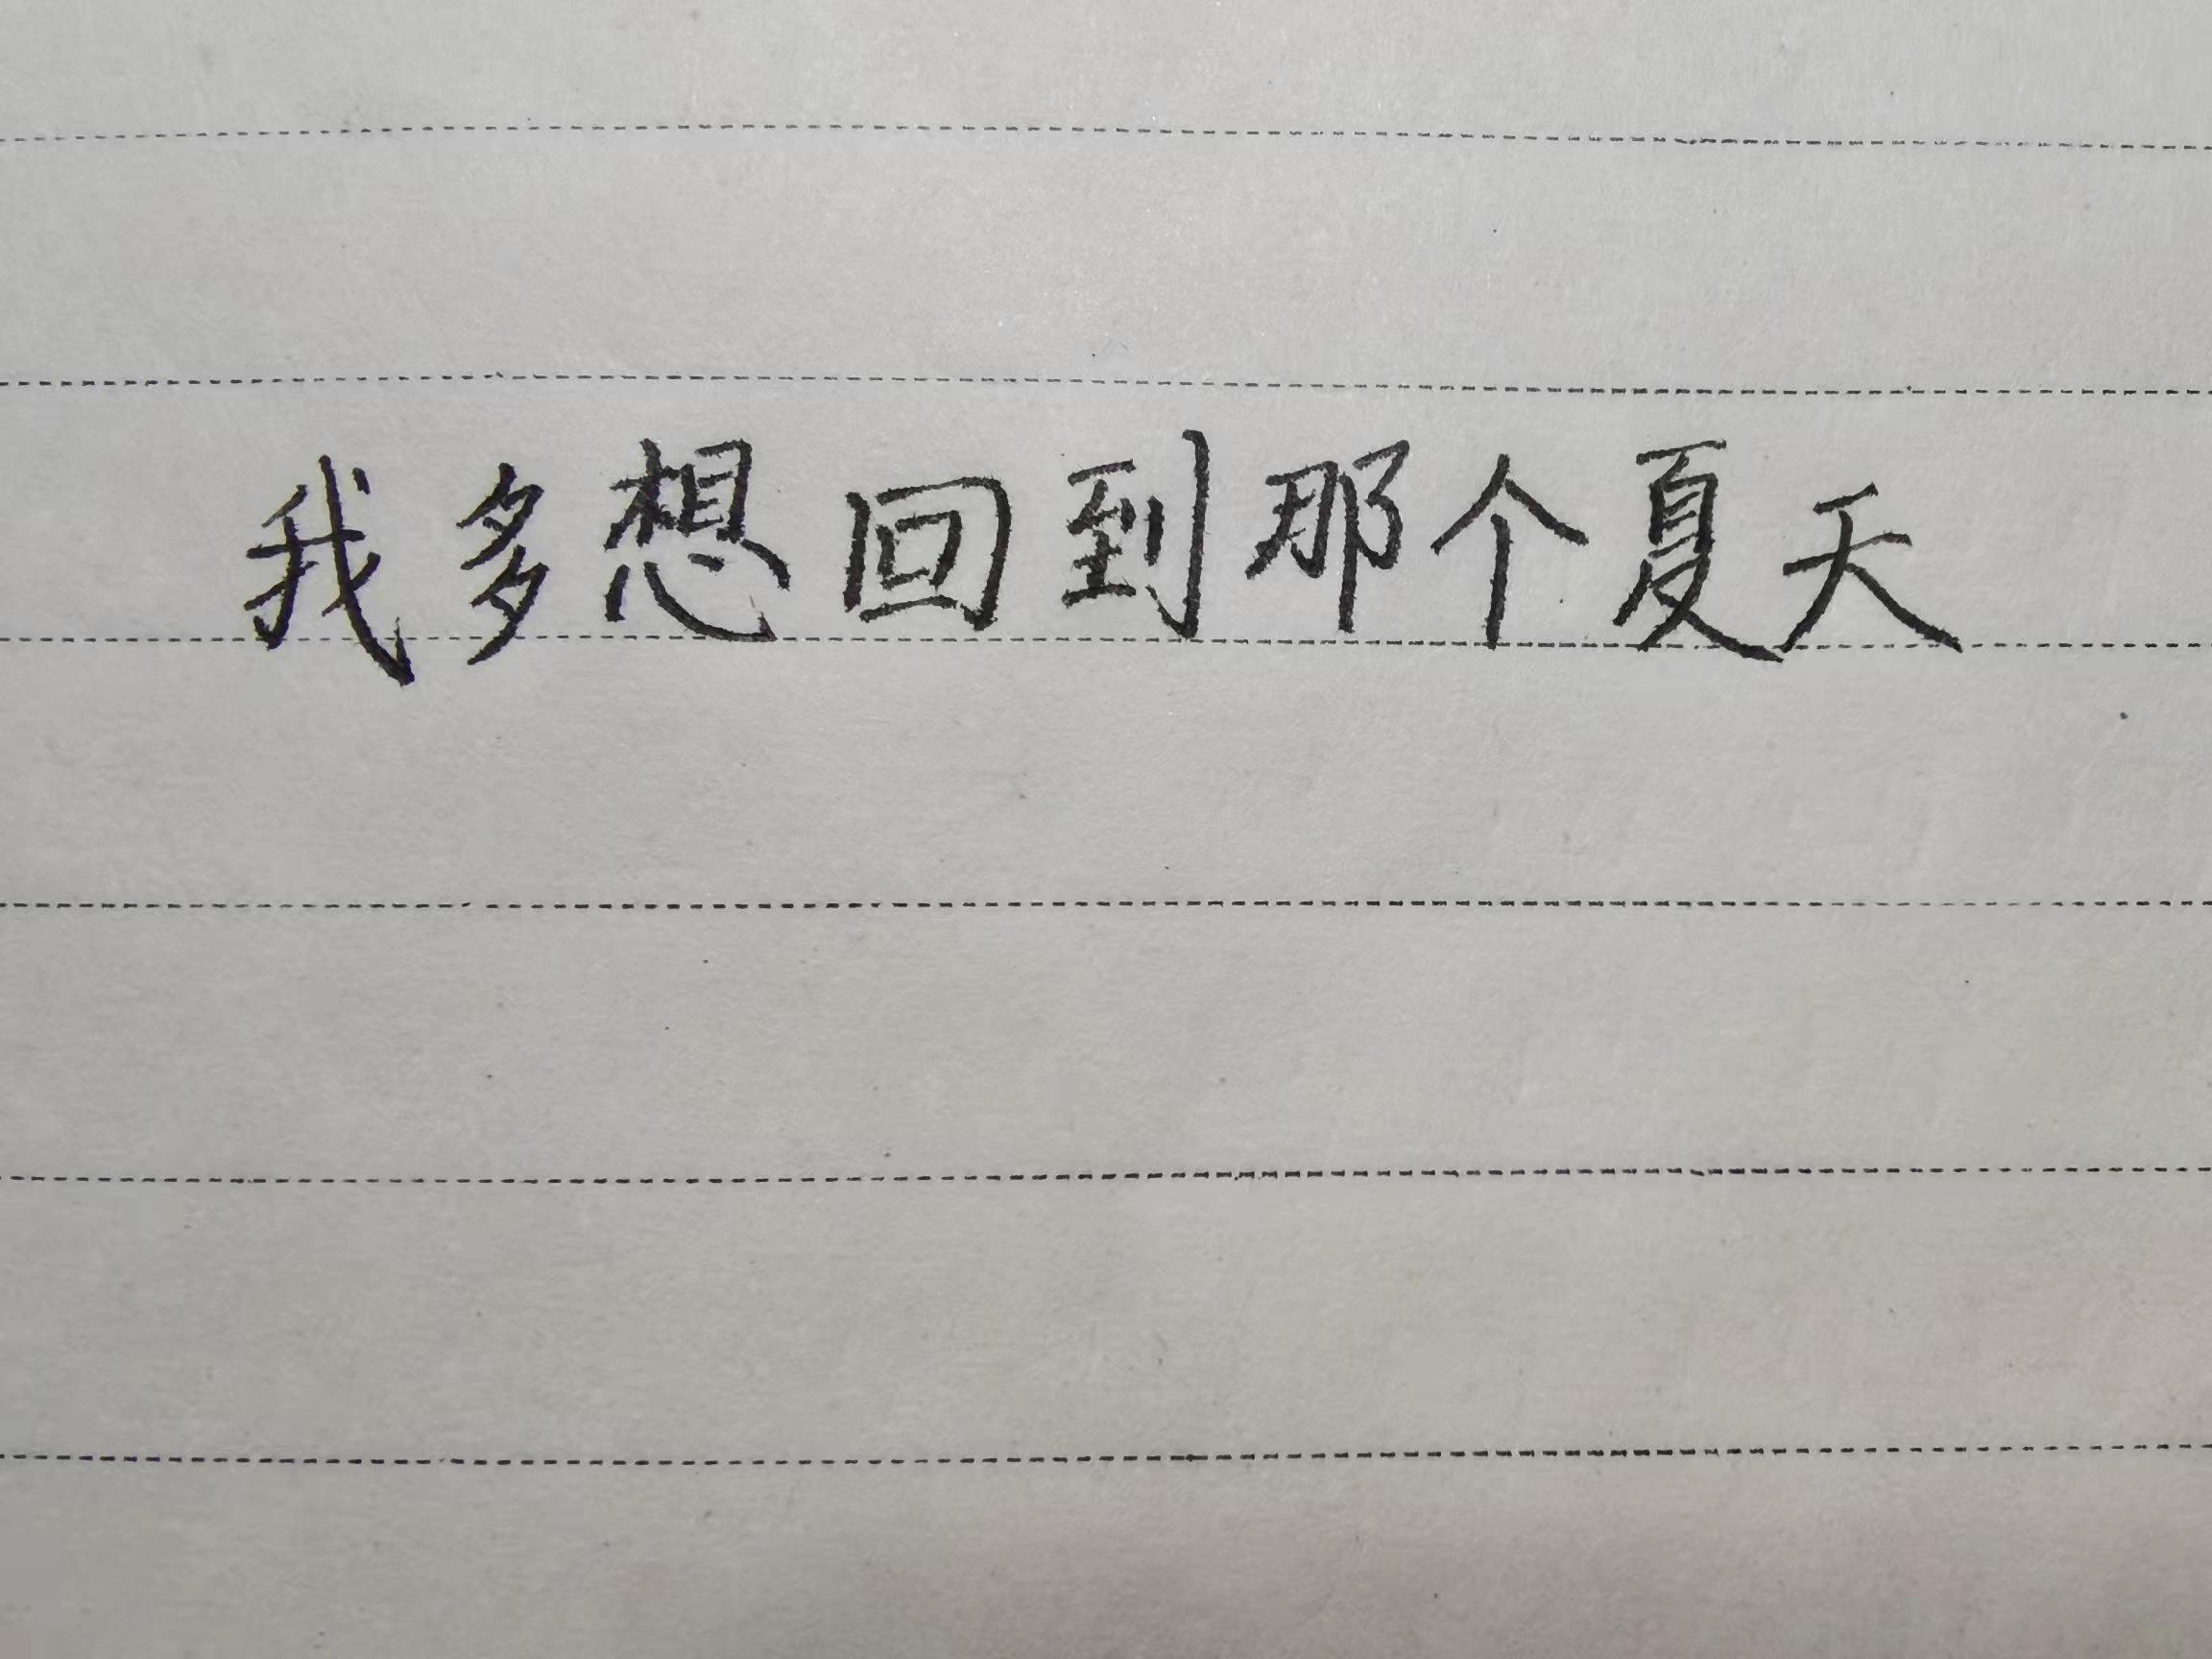 我多想回到那个夏天